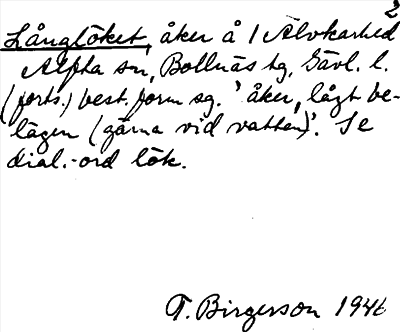 2
Långlöket, åker å 1 Älvkarhed
Alfta sn, Bollnäs tg, Gävl. l.
(forts.) best. form sg. 'åker, lågt be-
lägen (gärna vid vatten)'. Se
dial.-ord lök.
T. Birgerson 1946